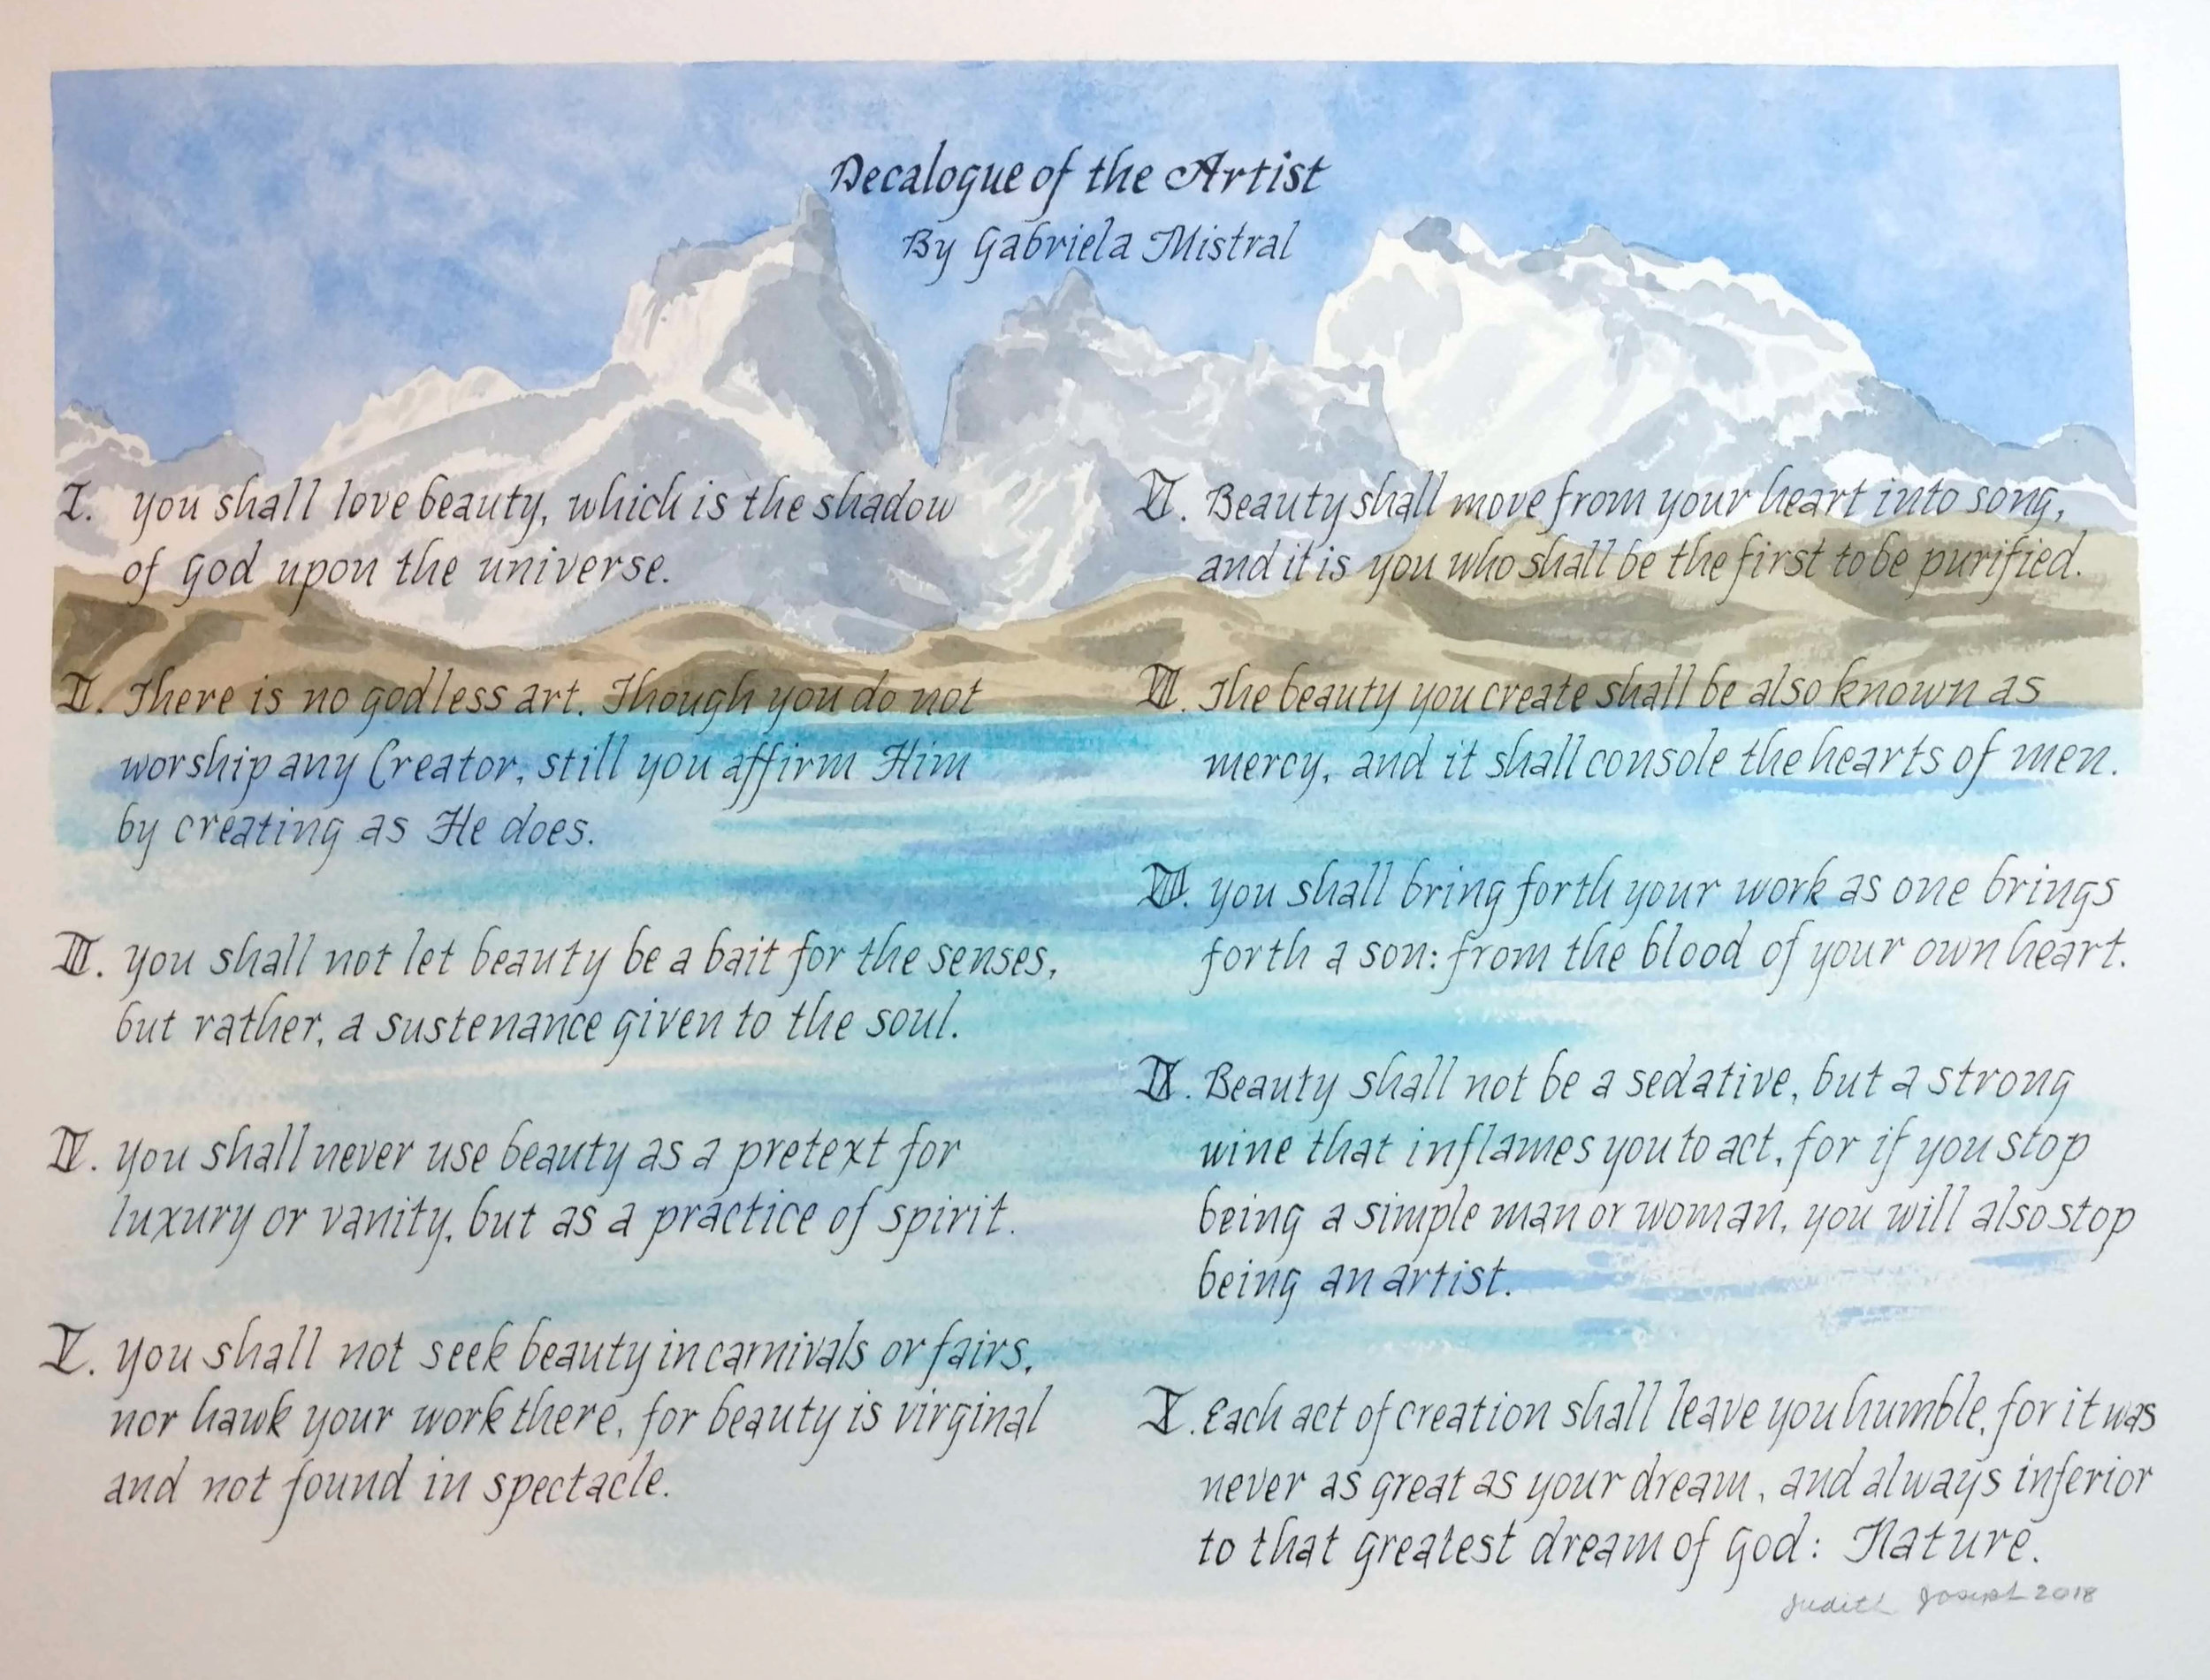 Decalogue of the Artist
By Gabriela Mistral
I. you shall love beauty, which is the shadow
of god upon the universe.
II. There is no godless art. Though you do not
worship any Creator, still you affirm Him
by creating as He does.
III. you shall not let beauty be a bait for the senses,
but rather, a sustenance given to the soul.
IV. you shall never use beauty as a pretext for
luxury or vanity, but as a practice of spirit.
V. you shall not seek beauty in carnivals or fairs,
nor hawk your work there, for beauty is virginal
and not found in spectacle.
VI. Beauty shall move from your heart into song,
and it is you who shall be the first to be purified.
VII. The beauty you create shall be also known as
mercy, and it shall console the hearts of men.
VIII. you shall bring forth your work as one brings
forth a son: from the blood of your own heart.
IX. Beauty shall not be a sedative, but a strong
wine that inflames you to act, for if you stop
being a simple man or woman, you will also stop
being an artist.
X. Each act of creation shall leave you humble, for it was
never as great as your dream, and always inferior
to that greatest dream of god: Nature.
Judith Joseph 2018